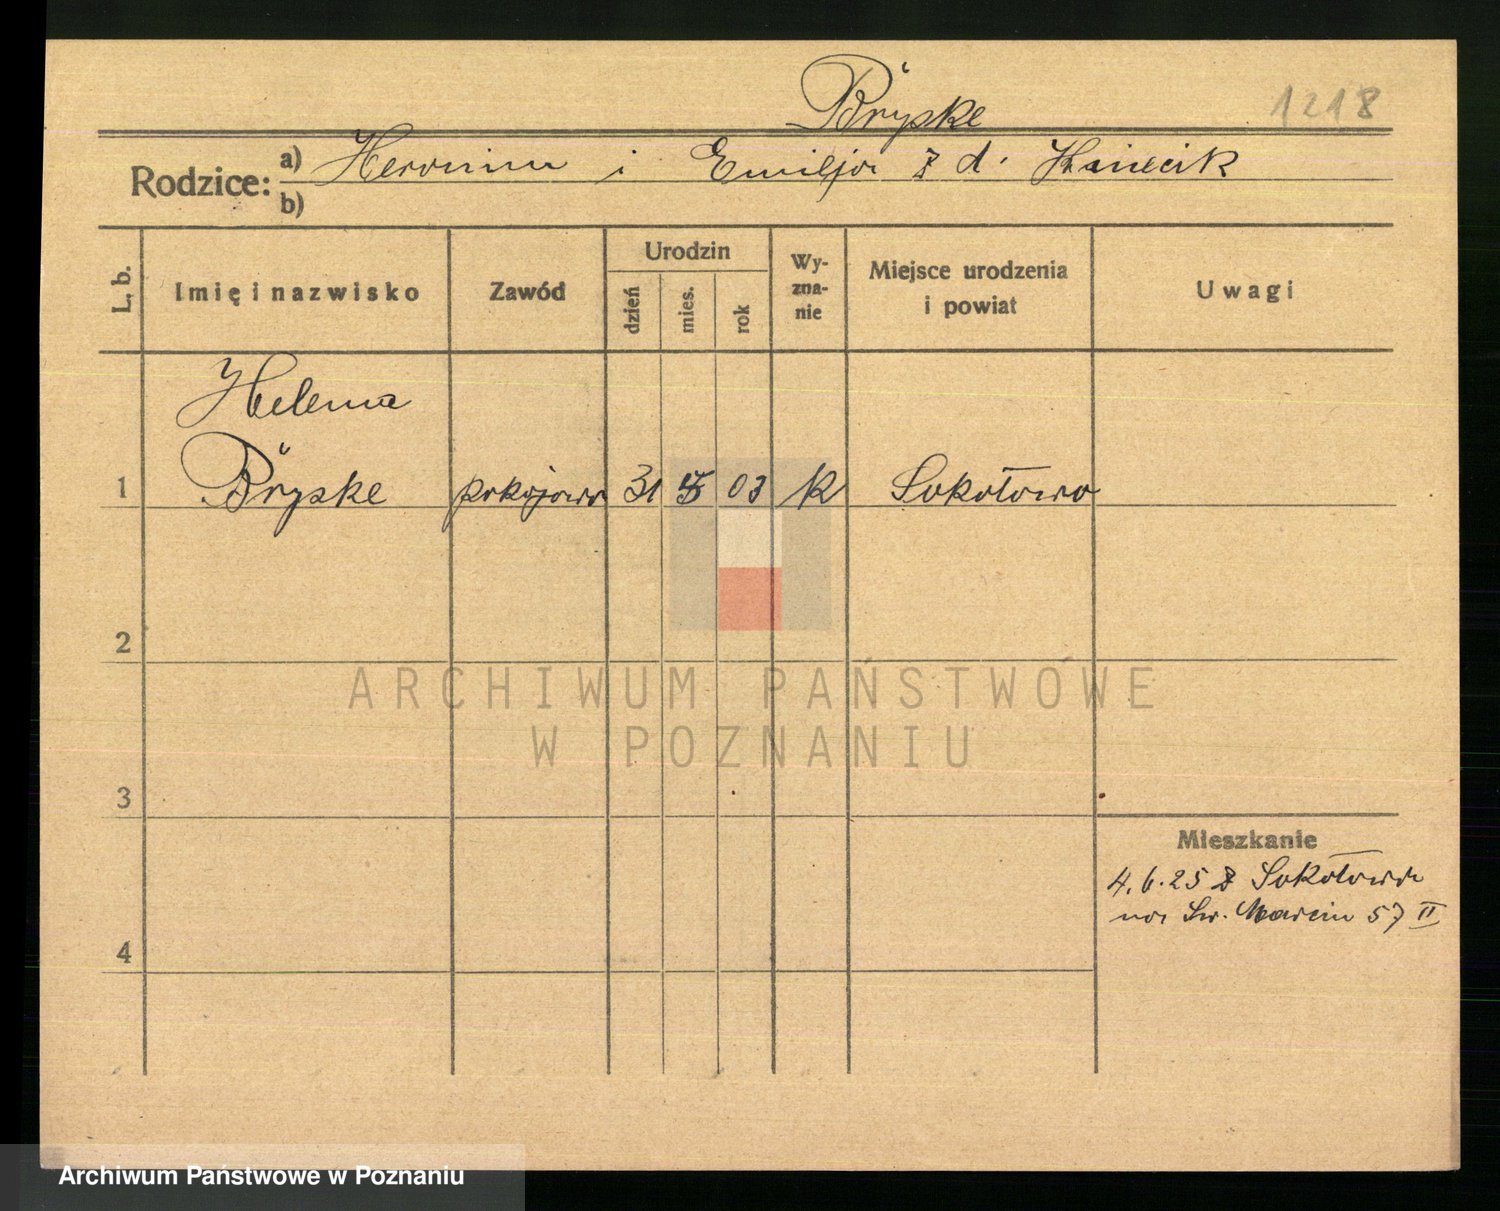 Bryske 1218
Rodzice: a) Heronim i Emilja z d.
b)
L. b. Imię i nazwisko Zawód Urodzin dzień mies. rok Wyznanie Miejsce urodzenia i powiat Uwagi
Helena
1 Bryske pokojowa 31 5 03 k Sokołowo
2
3
Mieszkanie
4. 6. 25 z Sokołowa
na Św. Marcin 57 II
4
ARCHIWUM PAŃSTWOWE
W POZNANIU
Archiwum Państwowe w Poznaniu